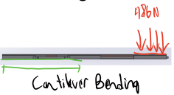 486N
Cantilever Bending